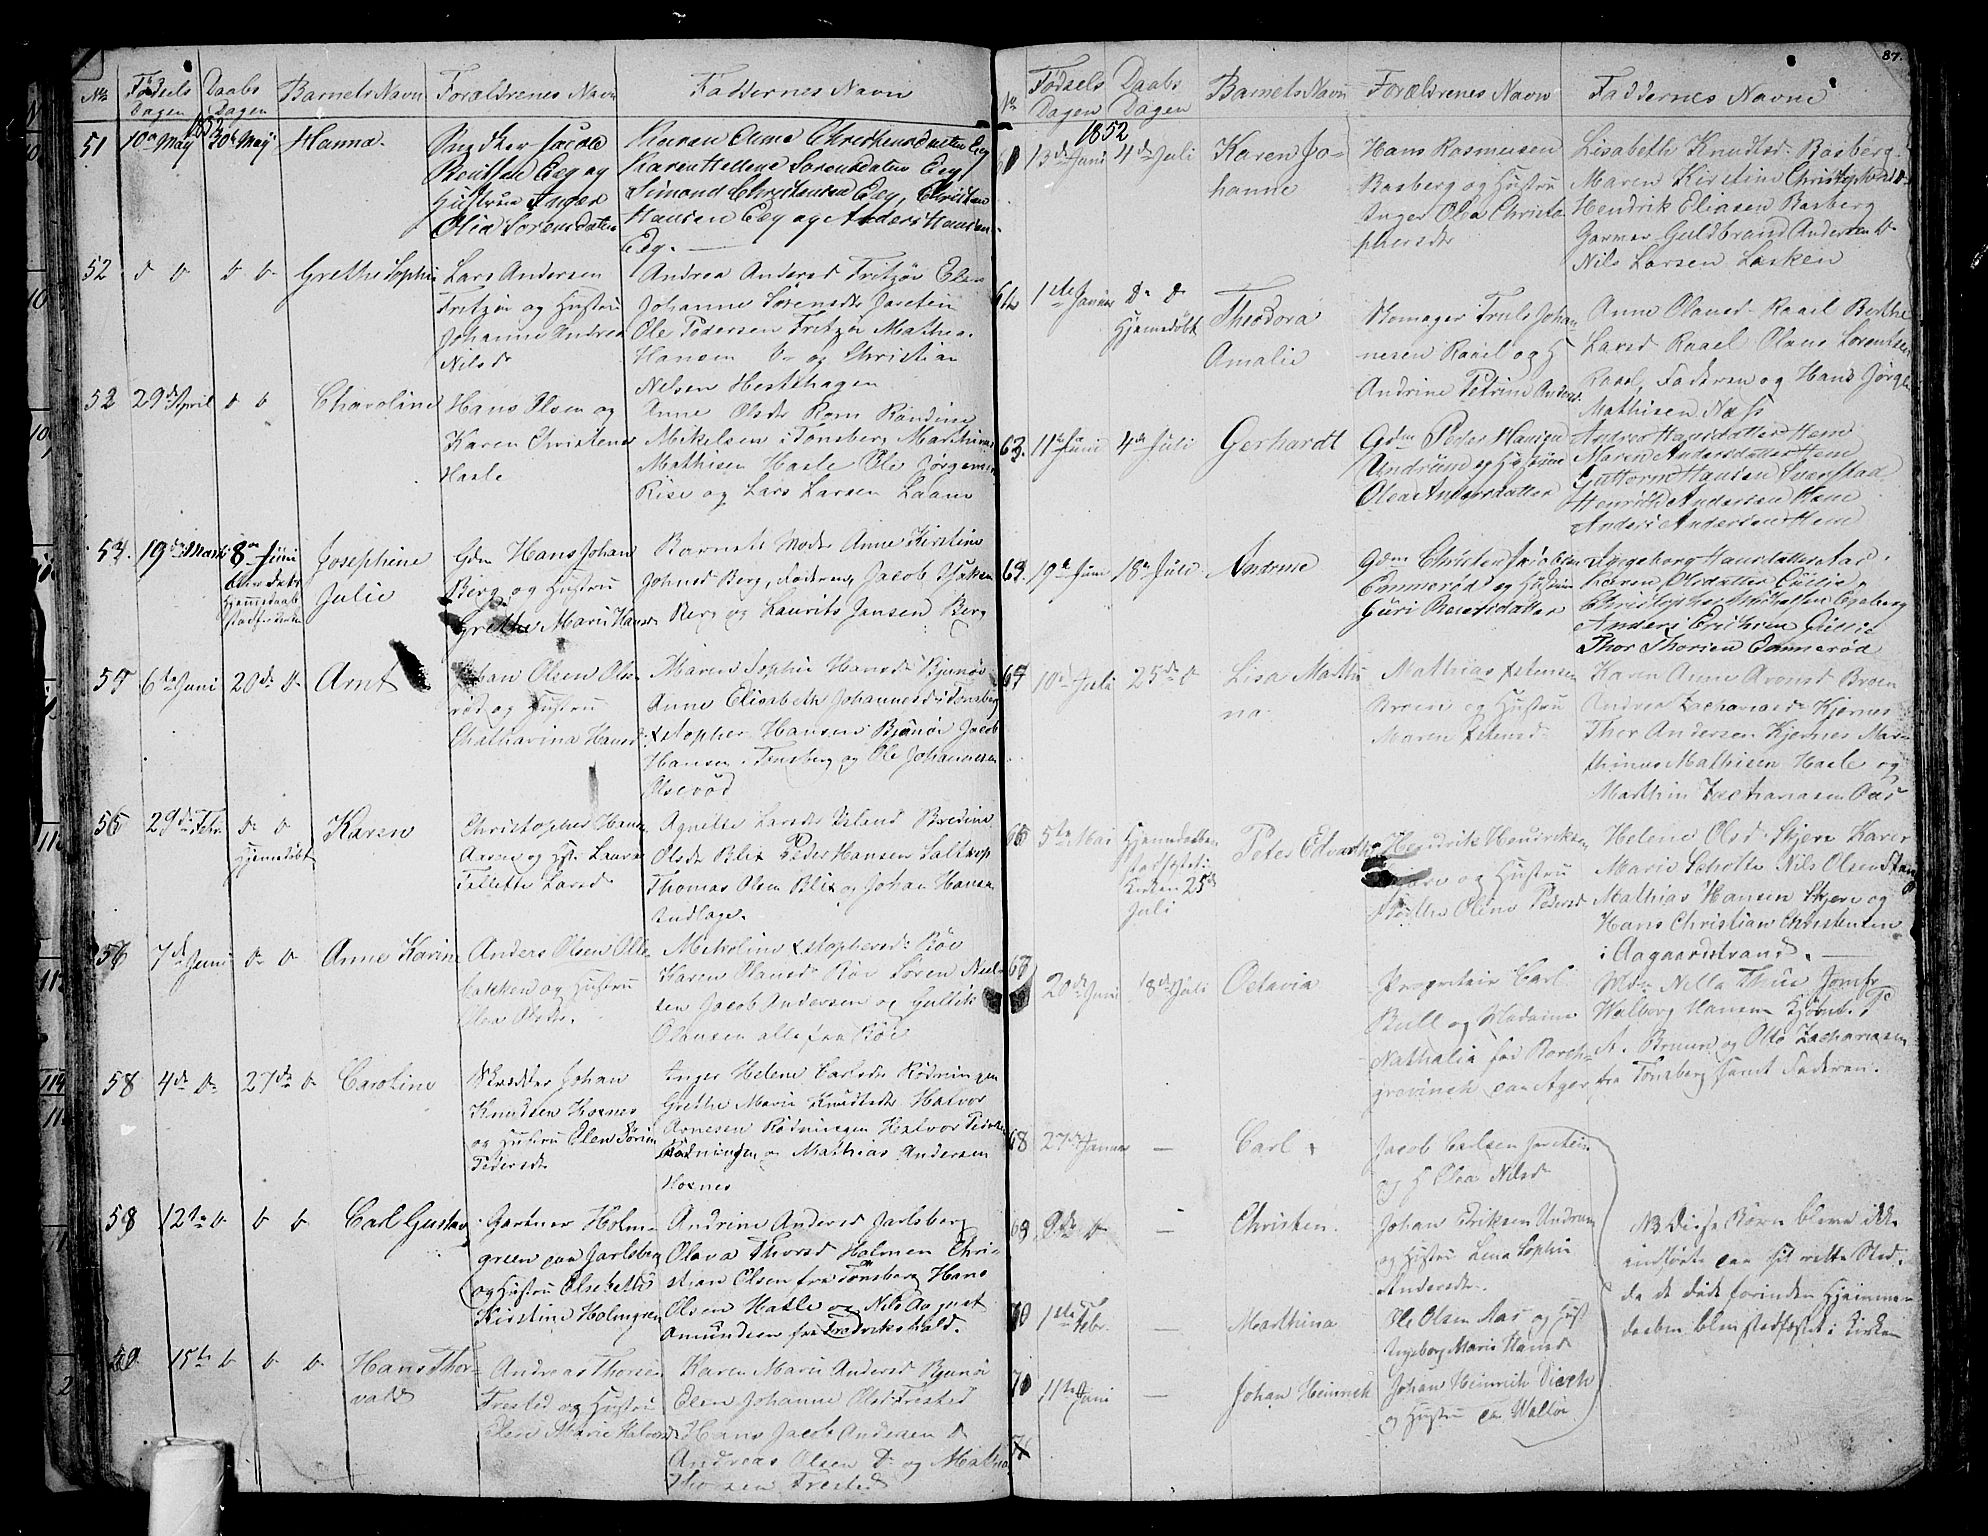 No Fødsels Dagen Daabs Dagen Barnets Navn Forældrenes Navn Faddernes Navn
1852
51 10de May 30te May Hanna.
Jacob
Eeg og
Hustrue Inger
Olea Sorensdatter
Maren Anne Christensdatter Eeg
Karen Hellene Sorensdatter Eeg
Simond Christensen Eeg, Christen
Hansen Eeg og Anders Hansen
Eeg.
52 d o o o Grethe Sophie
Lars Andersen
Fritzøe og Hustru
Johanne Andrea
Nilsd
Andrea Andersd Fritzøe Elen
Johanne Sørensdr Jaretein
Ole Pedersen Fritzøe Mathis
Hansen o og Christian
Nelsen Hestehagen
52 29de April o o Charoline
Hans Olsen og
Karen Christense
Hasle
Anne Olsdr Rom Randine
Mikelsen i Tønsberg Marthine
Mathisen Hasle Ole Jørgensen
Rise og Lars Larsen Laane
54. 19de Marti 8de Juni
Josephine
Julie
Gdm Hans Johan
Berg og Hustru
Grethe Marie Hansd
Barnets Moder Anne Kirstine
Johnsd Berg, Faderen, Jacob Isaksen
Berg og Laurits Jansen Berg
55 6te Juni 20de o Arnt
Johan Olsen Olse
rød og Hustru
Chatharina Hansd
Maren Sophie Hansdr Bjunør
Anne Elisabeth Johannesd i Tønsberg
Xstopher Hansen Bjunør Jacob
Hansen i Tønsberg og Ole Johannesen
Olserød
56 29de Febr. o o
Hjemedøbt
Karen
Christopher Hansen
Aarnes og Hst. Laura
Tallette Larsd
Agnette Larsdr Island Bredine
Olsdr Blix Peder Hansen Saltkop
Thomas Olsen Blix og Johan Hansen
Indlage.
56 7de Juni o o Anne Karine
Anders Olsen Olle
bakken og Hustru
Olea Olsdr.
Mikoline Xstophersdr Røe
Karen Olausd Røe Søren Niel
sen Jacob Andersen og Gullik
Olausen alle fra Røe
58 4de o 27de o Caroline
Skrædder Johan
Knudsen Hoxnes
og Hustru Elen Sørine
Pedersdr
Inger Helene Carlsdr Rødningen
Grethe Marie Knudsdr Halvor
Arnesen Rødningen Halvor Peders
Rødningen og Mathias Andersen
Hoxnes
59 12te o o o Carl Gustav
Gartner Holm
green paa Jarlsberg
og Hustru Elsebeth
Kirstine Holmgren
Andrine Andersd Jarlsberg
Olava Thorsd Holmen Chri-
stian Olsen fra Tønsberg Hans
Olsen Hasle og Nils August
Amundsen fra Fredrikshald.
60 15te o o o Hans Thor
vald
Andreas Thorsen
Frested og Hustru
Elen Marie Halvorsd
Karen Marie Andersd Bjunør
Elen Johanne Olsd Frested
Hans Jacob Andersen o
Andreas Olsen Do og Mathis
Thorsen Frested
87.
No Fødsels Dagen Daabs Dagen Barnets Navn Forældrenes Navn Faddernes Navne
1852
61 13de Juni 4de Juli Karen Jo-
hanne
Hans Rasmusen
Basberg og Hustru
Inger Olea Christo
phersdr
Lisabeth Knudtsd Basberg
Maren Kirstine Christophersd o
Hendrik Eliasen Basberg
Garmer Guldbrand Andersen o
Nils Larsen Løsken
62 1ste Januar Do Do
Hjemedøbt
Theodora
Amalie
Skomager Truls Johan
nesen Raael og H
Andrine Petrine Andersd
Anne Olausd Raael Berthe
Larsd Raael Olaus Lorentsen
Raael, Faderen og Hans Jørgen
Mathisen Næss
63. 11te Juni 4de Juli Gerhardt
Gdm Peder Hansen
Undrum og Hustrue
Olea Andersdatter
Andrea Hansdatter Hem
Maren Andersdatter Hem
Guttorm Hansen Sverstad
Henrik Andersen Hem
Anders Andersen Hem
63. 19de Juni 18de Juli Andrine
Gdm Christen Jacobsen
Emmerød og Hustrue
Guri
Ingeborg Hansdatter Aas
Karen Olsdatter Gullie
Christopher Mikkelsen Egeberg
Anders Eriksen Gullie
Thor Thorsen Emmerød
64 10de Juli 25de o Lisa Mathi
na
Mathias Xstensen
Broen og Hustru
Maren Xstensd
Karen Anne Aronsd Broen
Andrea Zachariasd Kjernes
Thor Andersen Kjernes Mar
thinus Mathisen Hasle og
Marthin Zachariasen Aas
66 5te Mai Hjemmedøbt
stadfæstet i
Kirken 25de
Juli
Peter Edvardt
Hendrik Hendriksen
Skjere og Hustru
Berthe Oline Pedersd
Helene Olsd Skjere Karen
Marie Scholte Nils Olsen Stang
Mathias Hansen Skjere og
Hans Christian Christensen
i Aagaardstrand.
67 20de Juni 18de Juli Octavia
Proprietair Carl
Bull og Madame
Nathalia fød Borch
grevinck paa Ager
Mdm Nilla Thue Jomfr
Walborg Hansen Kjøbmd. P
A. Bruun og Otto Zachariasen
fra Tønsberg samt Faderen.
68 27de Januar — Carl
Jacob Carlsen Jarstein
og H Olea Nilsd
69 9de o — Christen
Johan Eriksen Undrum
og Hustru Lena Sophie
Andersdr.
NB Disse Børn bleve ikke
indførte paa sit rette Sted,
da de døde forinden Hjemme
daaben blev stadfæstet i Kirken
70 1ste Febr. — Marthina
Ole Olsen Aas og Hust
Ingeborg Marie Hansd
71 11te Juni — Johan Heinrich
Johan Heinrich
og Hustru paa Valløe